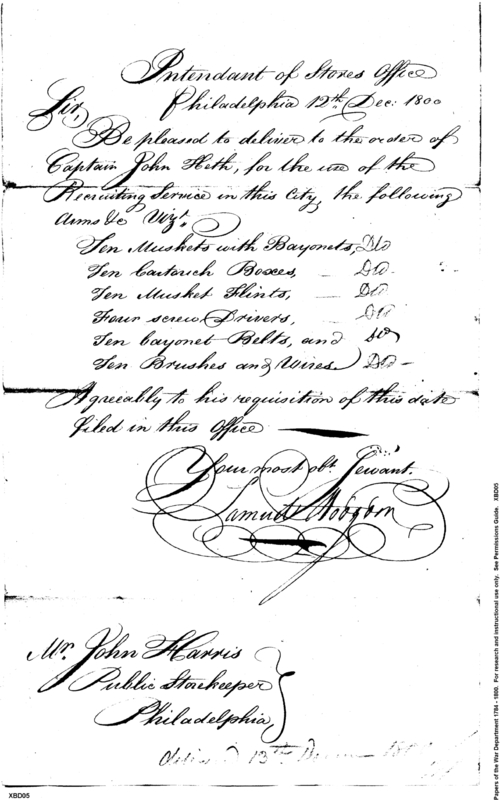 Intendant of Stores Office
Philadelphia 12th. Dec: 1800
Sir,
Be pleased to deliver to the order of
Captain John Heth, for the use of the
Recruiting Service in this City, the following
Arms &c Vizt.
Ten Muskets with Bayonets,
Ten Cartouch Boxes,
Ten Musket Flints,
Four screw Drivers,
Ten bayonet Belts, and
Ten Brushes and Wires
Agreeably to his requisition of this date
filed in this Office
Your most obt. Servant.
Samuel Hodgdon
Mr. John Harris
Public Storekeeper
Philadelphia,
13th
XBD05
Papers of the War Department 1784 - 1800. For research and instructional use only. See Permissions Guide. XBD05